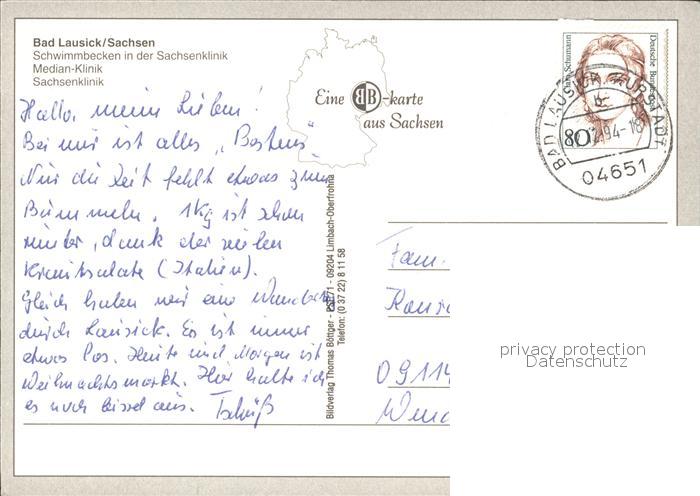 Bad Lausick/Sachsen
Schwimmbecken in der Sachsenklinik
Median-Klinik
Sachsenklinik
Eine BB-karte
aus Sachsen
Clara Schumann
Deutsche Bundespost
80
BAD LAUSICK, KURSTADT
12.94-18
04651
Hallo, meine Lieben!
Bei mir ist alles „Bestens"
Nur die Zeit fehlt etwas zum
Bummeln. 1Kg ist schon
runter, dank der vielen
Krautsalate (Italien).
Gleich haben wir eine
durch Lausick. Es ist immer
etwas los. Heute und Morgen ist
Weihnachtsmarkt. Hier halte ich
es noch bissel aus. Tschüß
Bildverlag Thomas Böttger - PSF 71 - 09204 Limbach-Oberfrohna
Telefon: (0 37 22) 8 11 58
Fam.
09114
privacy protection
Datenschutz